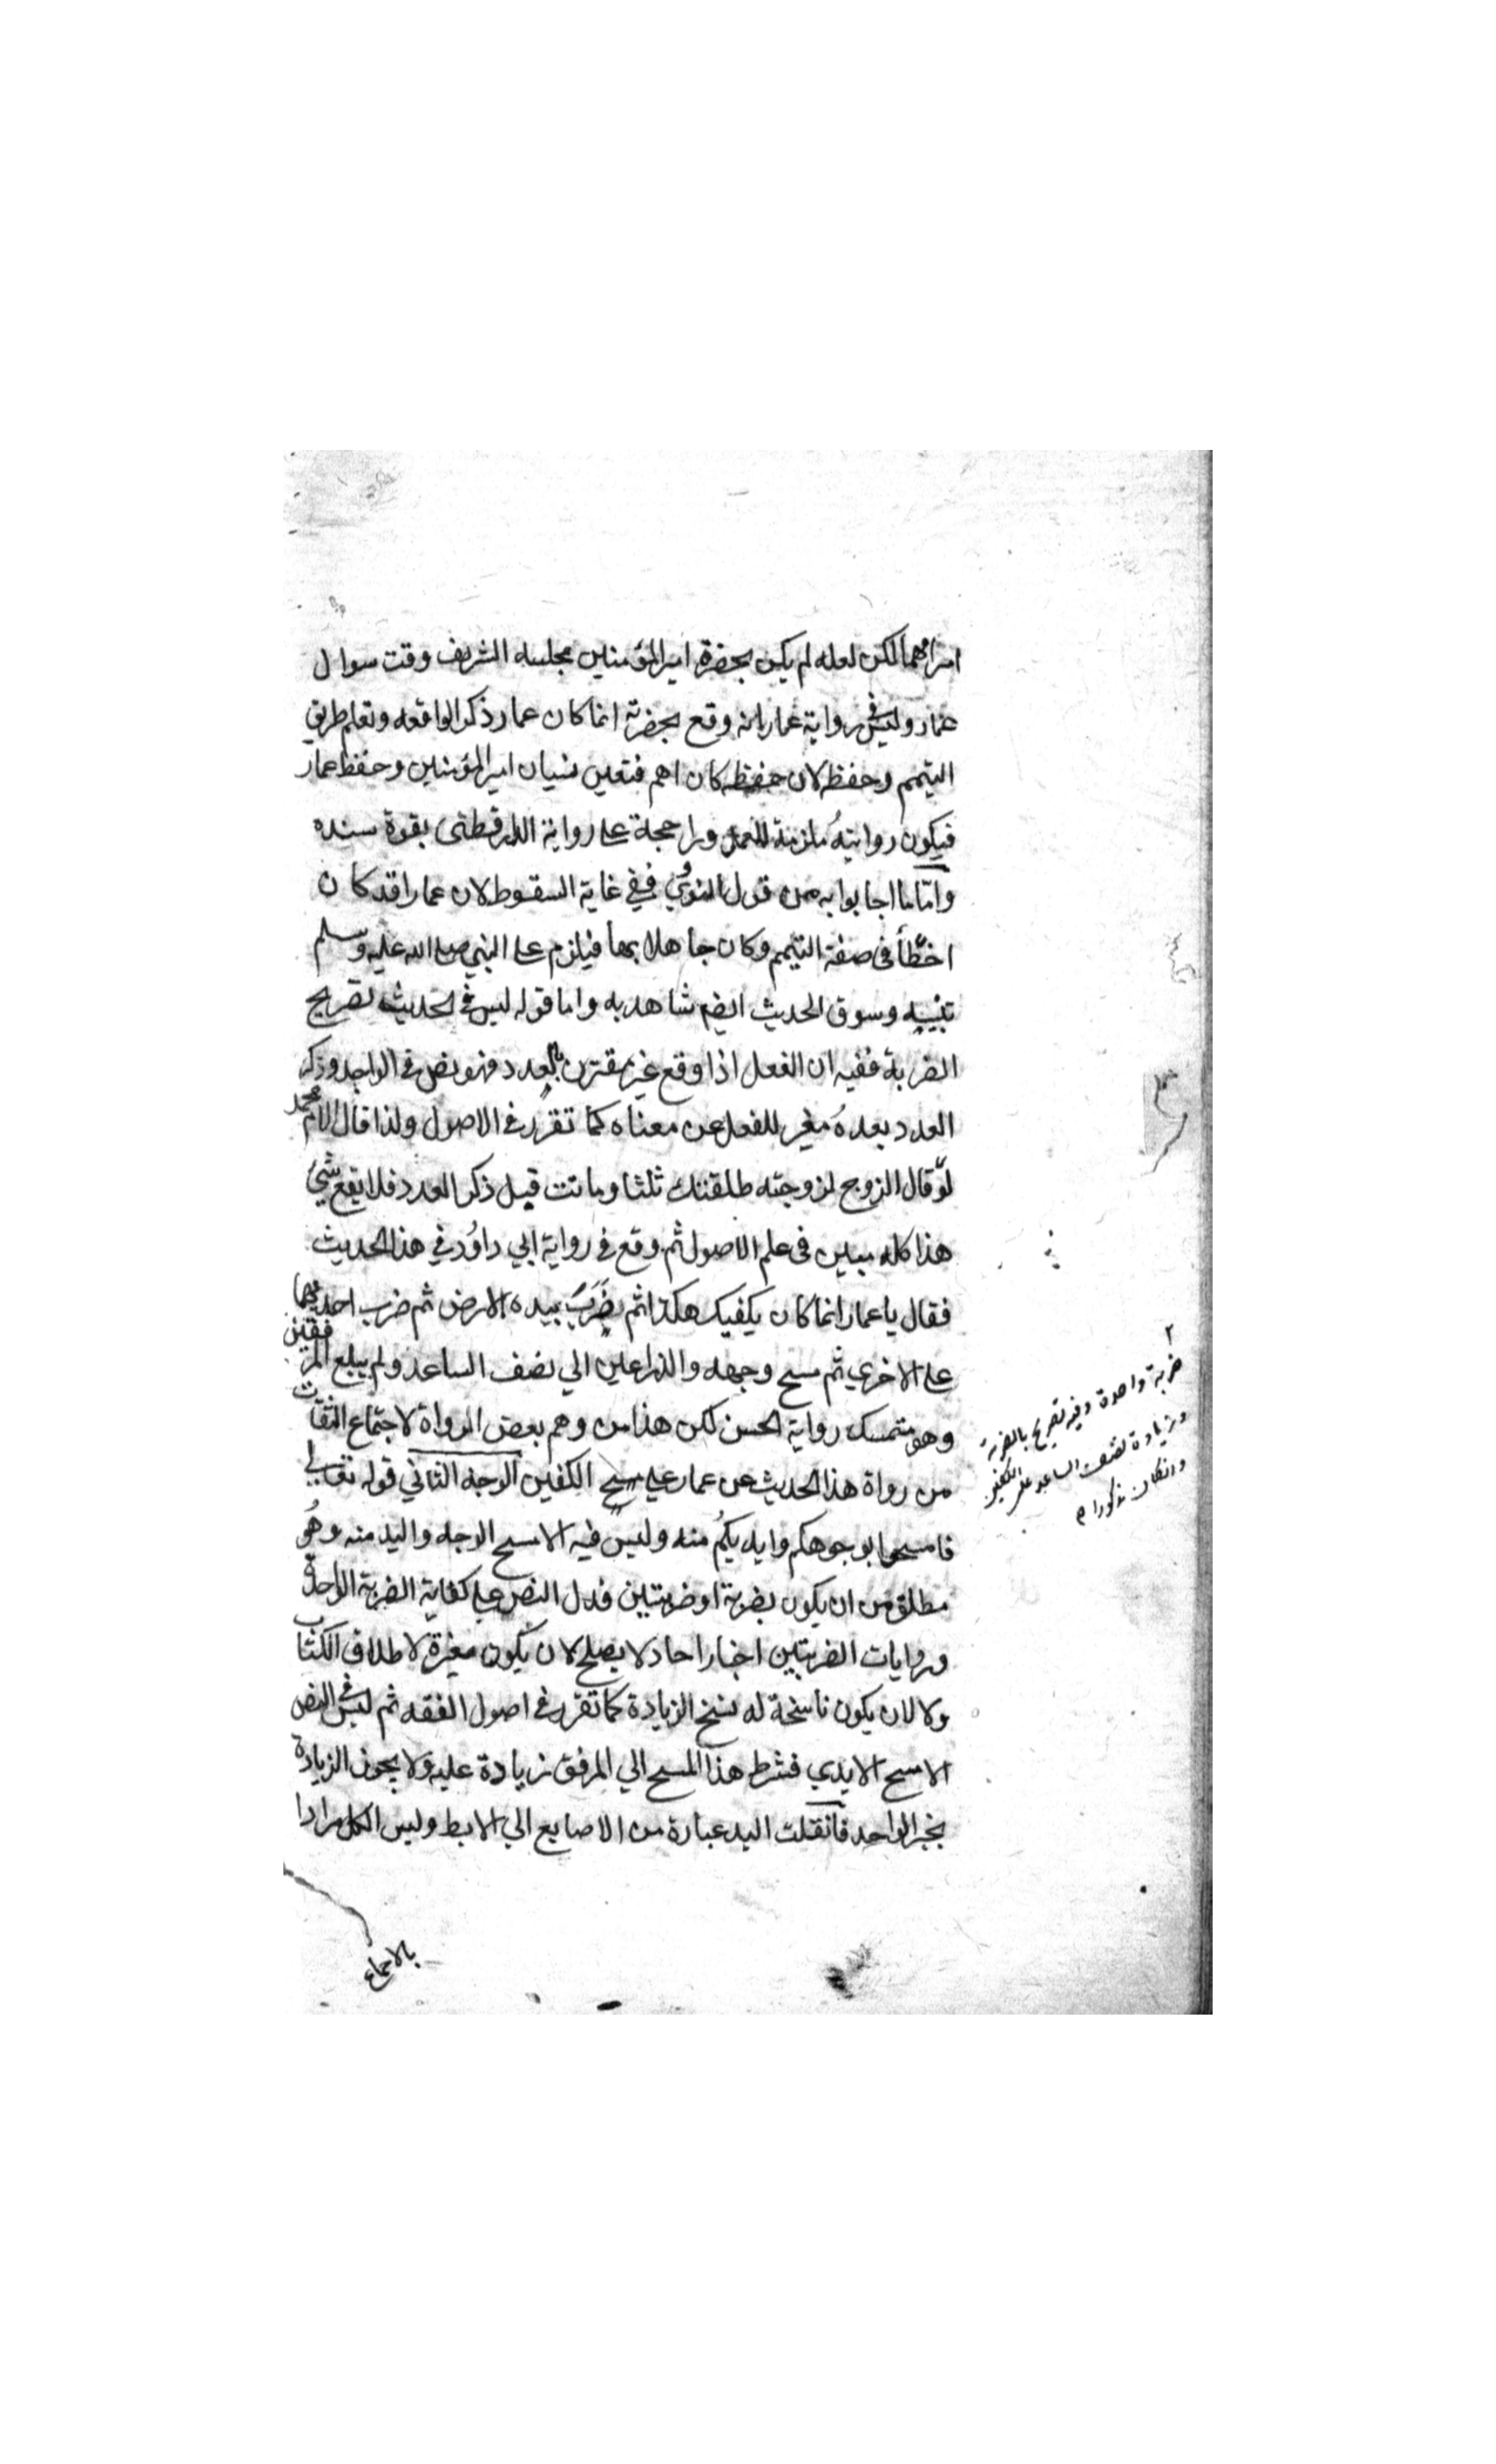 امراهما لكن لعله لم يكن بحضرة امير المؤمنين بمجلسه الشريف وقت سوال
عمار وليس في رواية عمار انه وقع بحضرته انما كان عمار ذكر الواقعه وتعلم طريق
التيمم وحفظه لان حفظه كان اهم فتعين نسيان امير المؤمنين وحفظ عمار
فيكون روايته ملزمة للعمل وراجحة على رواية الدارقطنى بقوة سنده
وامّا ما اجابوا به من قول النووي ففي غاية السقوط لان عمارا قد كان
اخطّأ فى صفة التيمم وكان جاهلا بها فيلزم على النبي صلى الله عليه وسلم
تنبيه وسوق الحديث ايضم شاهد به واما قوله ليس في الحديث تصريح
الضربة ففيه ان الفعل اذا وقع غير مقترن بالعدد فهو نص في الواحد وذكر
العدد بعده مغير للفعل عن معناه كما تقرر في الاصول ولذا قال الامام محمد
لو قال الزوج لزوجته طلقتك ثلثا وماتت قبل ذكر العدد فلا يقع شئ
هذا كله مبين فى علم الاصول ثم وقع فى رواية ابي داؤد في هذا الحديث
فقال يا عمار انما كان يكفيك هكذا ثم ضرب بيده الارض ثم ضرب احديهما
على الاخري ثم مسح وجهه والذراعين الي نصف الساعد ولم يبلع المرفقين
وهو متمسك رواية الحسن لكن هذا من وهم بعض الرواة لاجتماع الثقات
من رواة هذا الحديث عن عمار علي مسح الكفين الوجه الثاني قوله تعالي
فامسحوا بوجوهكم وايديكم منه وليس فيه الا مسح الوجه واليد منه وهو
مطلق من ان يكون بضربة او ضربتين فدل النص علي كفاية الضربة الواحدة
وروايات الضربتين اخبار احاد لا يصلح لان يكون مغيرة لاطلاق الكتاب
ولا لان يكون ناسخة له نسخ الزيادة كما تقرر في اصول الفقه ثم ليس في النص
الا مسح الايدي فشرط هذا المسح الي المرفق زيادة عليه ولا يجوز الزيادة
بخبر الواحد فانقلت اليد عبارة من الاصابع الي الابط وليس الكل مرادا
بالاجماع
٢
ضربة واحدة وفيه تصريح بالضربة
وزيادة نصف الساعد على الكفين
وانكان مذكورا م